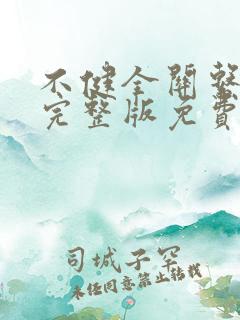 不健全關繫
完整版免費
司城子罕
未经同意禁止转载